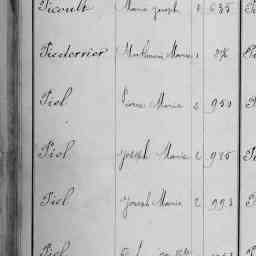 Picoult Marie Joseph 2 635
Piederrier Mathurin Marie 1
Piel Pierre Marie 2 950
Piel Joseph Marie 2 975
Piel Joseph Marie 2 993
Piel